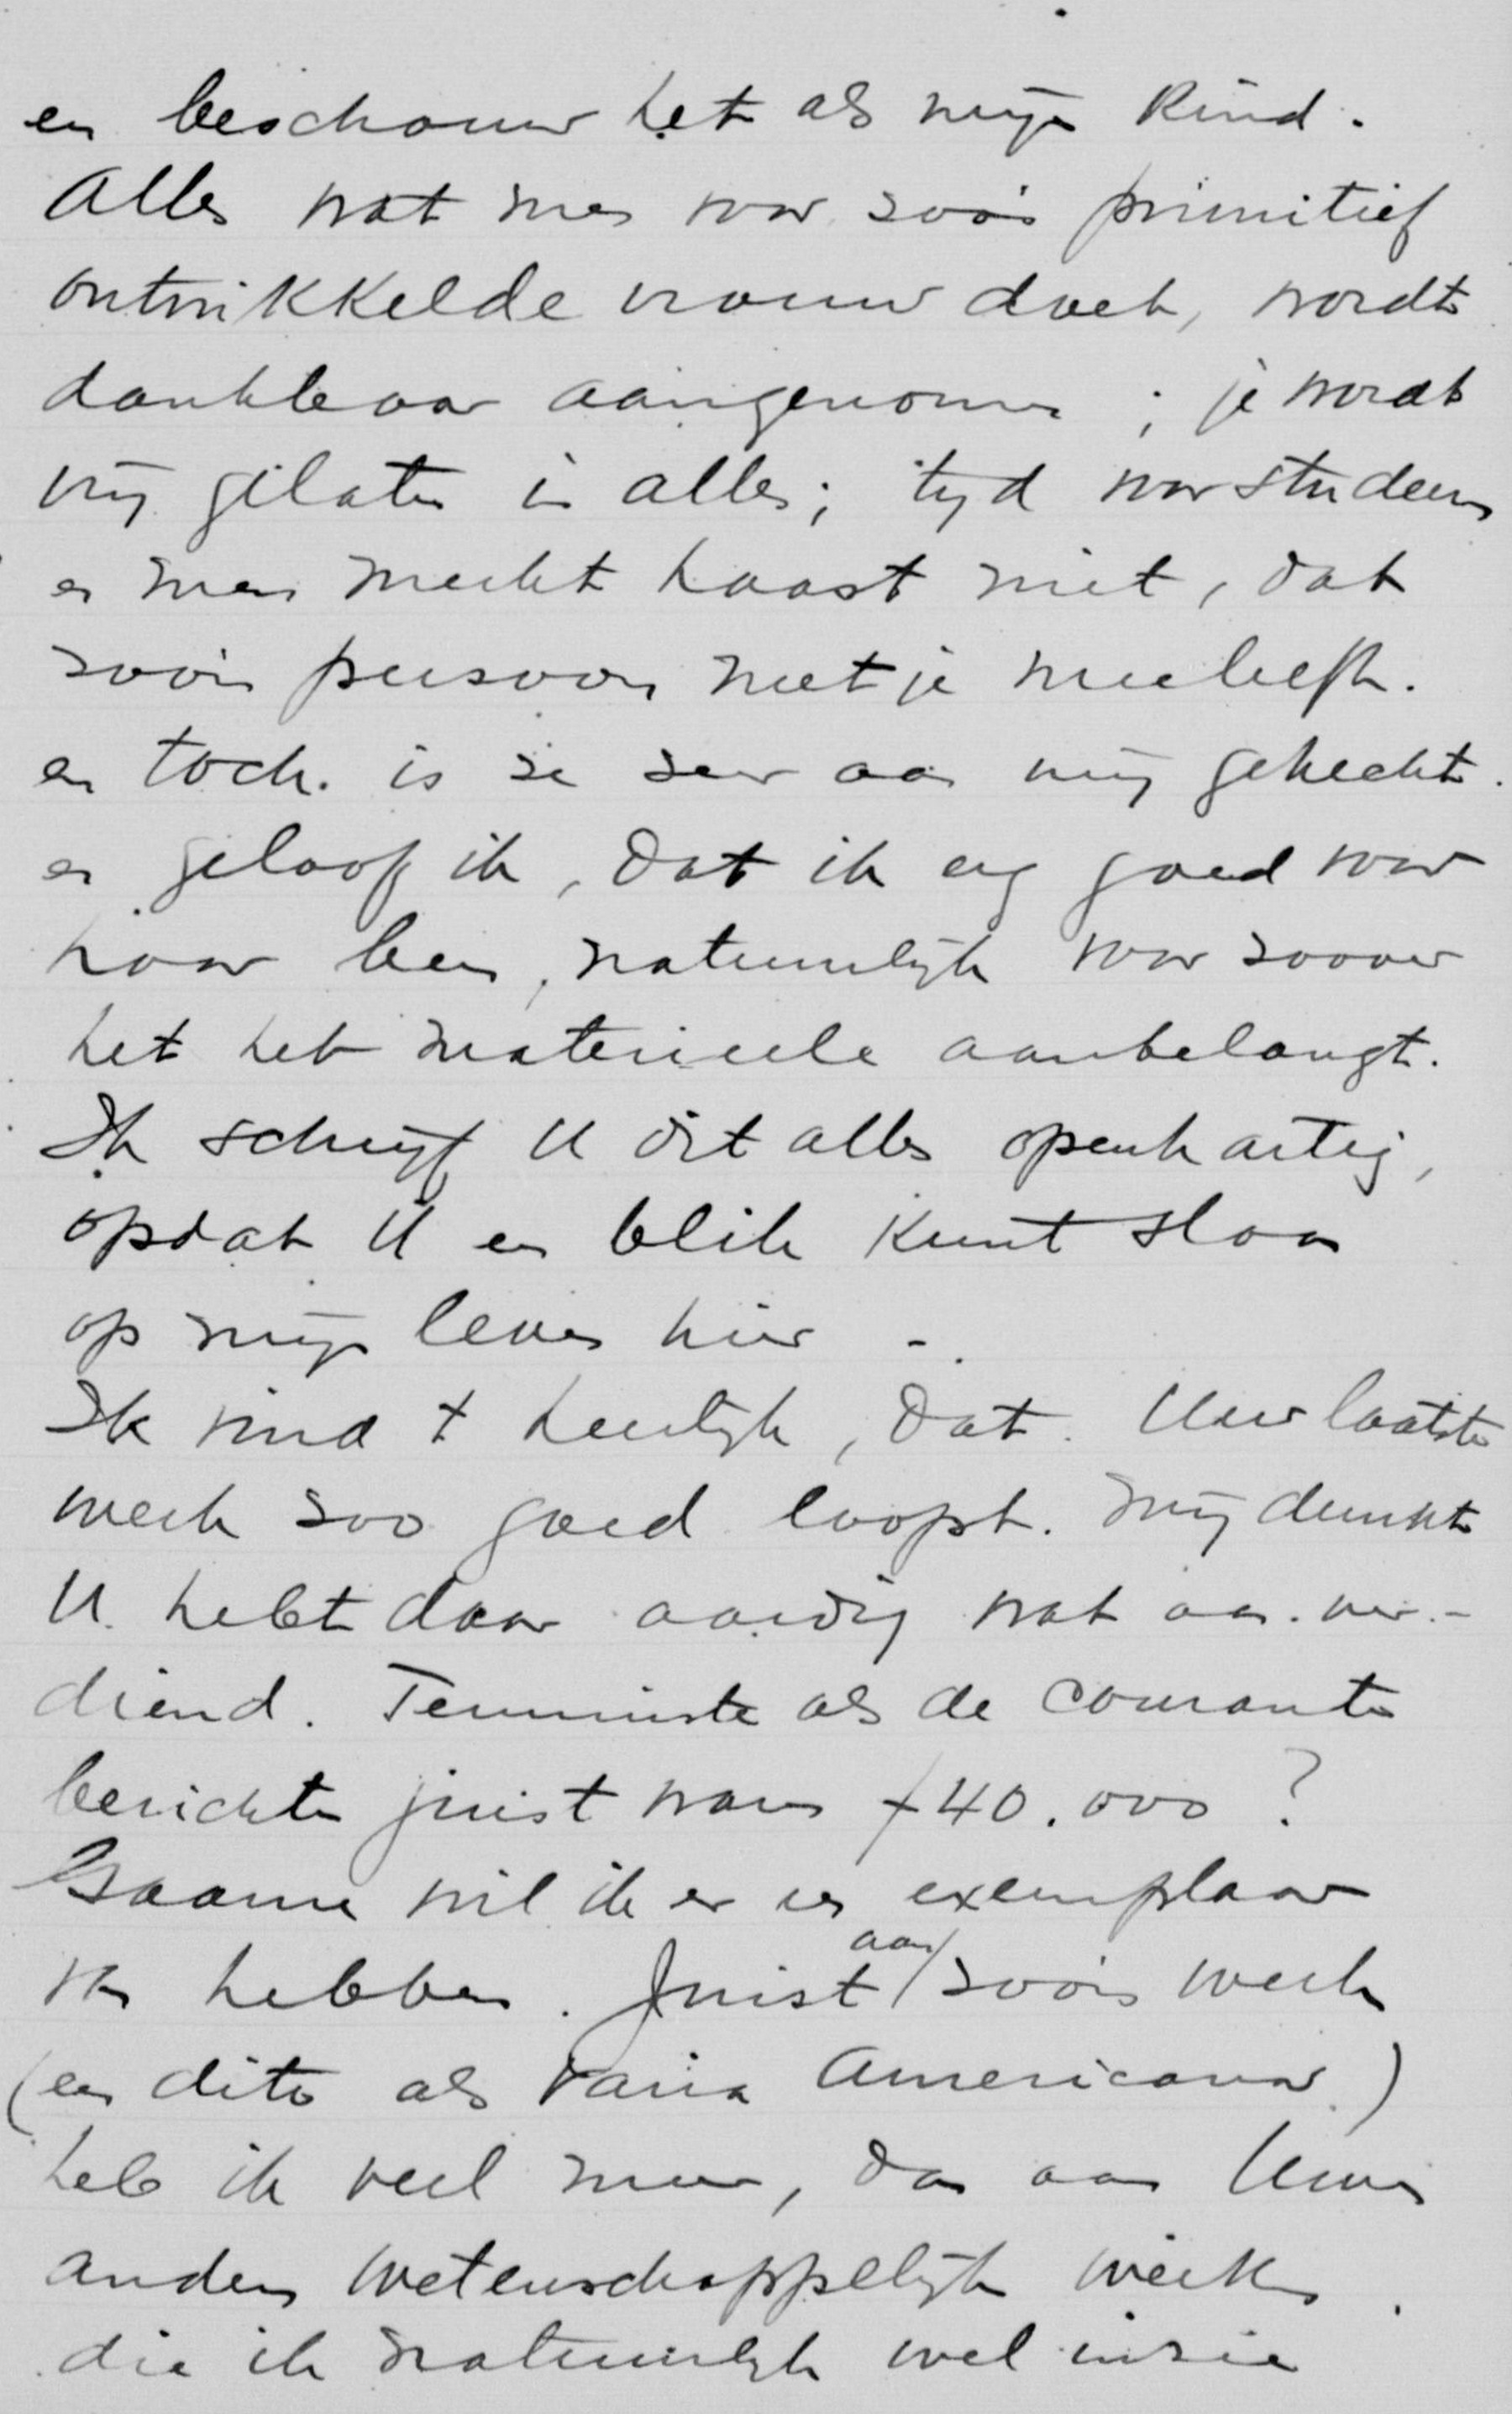 en beschouw het als mijn kind.
Alles wat men voor zoo'n primitief
ontwikkelde vrouw doet, wordt
dankbaar aangenomen ; je wordt
vrij gelaten in alles; tijd voor studeeren
en men merkt haast niet, dat
zoo'n persoon met je meeleeft.
en toch is ze zeer aan mij gehecht.
en geloof ik, dat ik erg goed voor
haar ben, natuurlijk voor zoover
het het materieele aanbelangt.
Ik schrijf U dit alles openhartig,
opdat U een blik kunt slaan
op mijn leven hier -.
Ik vind 't heerlijk, dat Uw laatste
werk zoo goed loopt. Mij dunkt
U hebt daar aardig wat aan ver-
diend. Tenminste als de couranten
berichten juist waren f 40.000 ?
Gaarne wil ik er een exemplaar
van hebben. Juist aan zoo'n werk
(een dito als Varia Americana)
heb ik veel meer, dan aan Uwe
andere wetenschappelijke werken.
die ik natuurlijk wel inzie